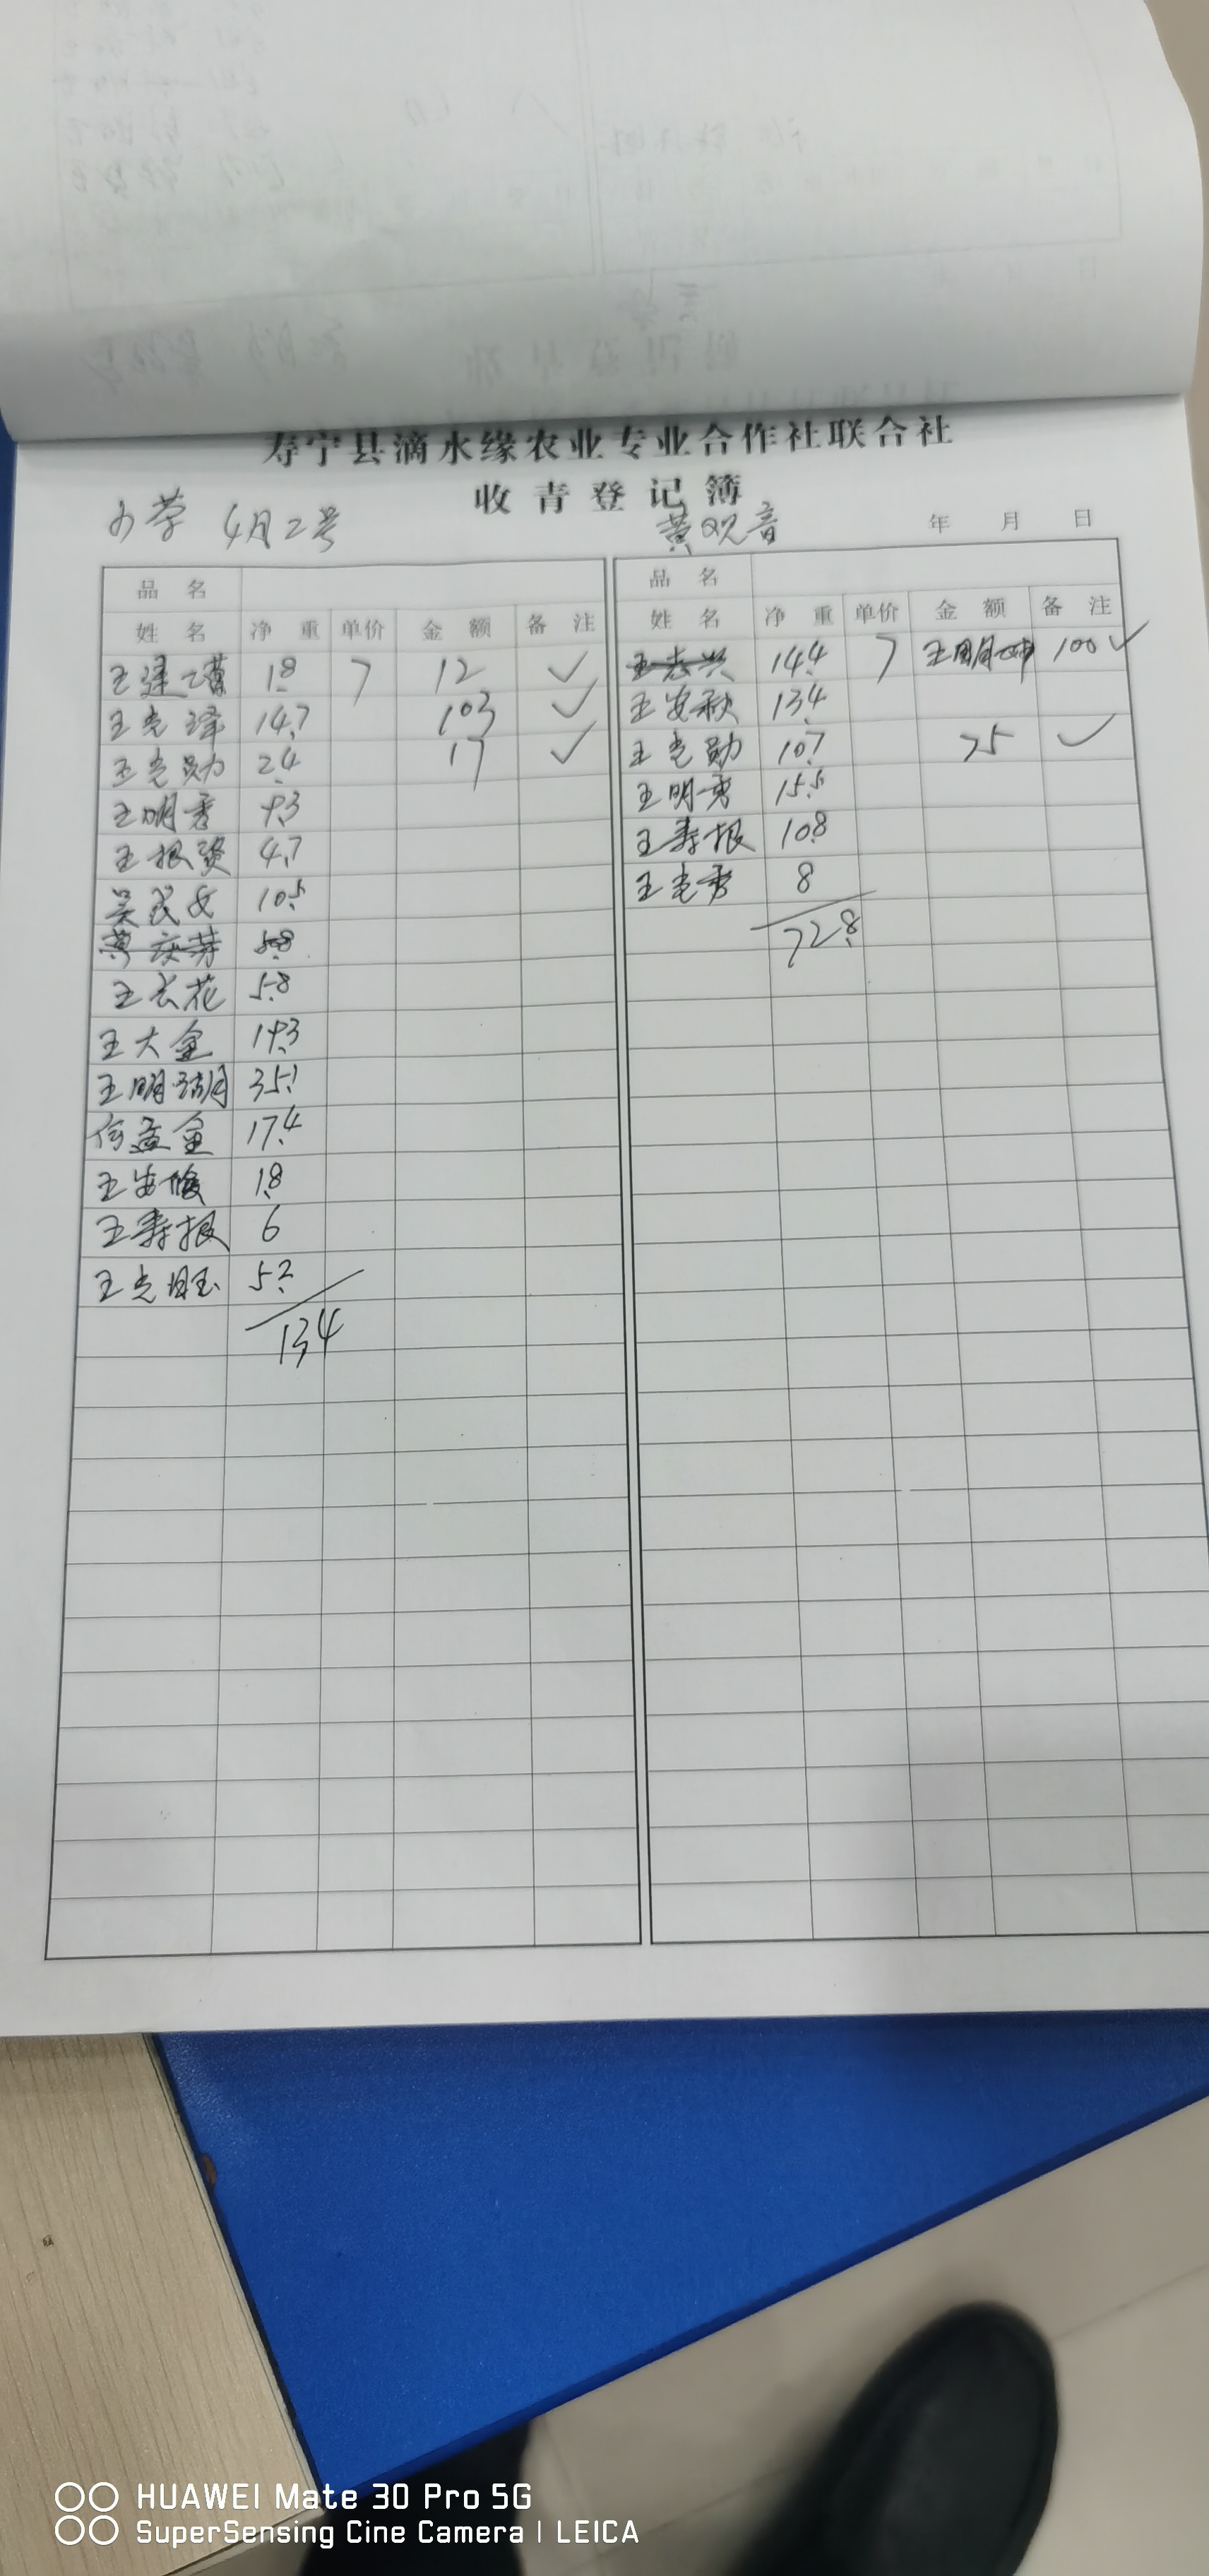 寿宁县滴水缘农业专业合作社联合社
收青登记簿
4月2号 黄观音 年 月 日
品名
姓名 净重 单价 金额 备注
王建 1.8 7 12 ✓
王光泽 14.7 103 ✓
王光勋 2.4 17 ✓
王明秀 9.3
王根贤 4.7
吴 女 10.5
5.8
王长花 5.8
王大金 19.3
王明 35.1
何孟金 17.4
王安俊 1.8
王寿报 6
王光 5.2
134
品名
姓名 净重 单价 金额 备注
14.4 7 王明 100 ✓
王安秋 13.4
王光勋 10.7 75 ✓
王明秀 15.5
王寿报 10.8
王光秀 8
72.8
HUAWEI Mate 30 Pro 5G
SuperSensing Cine Camera | LEICA